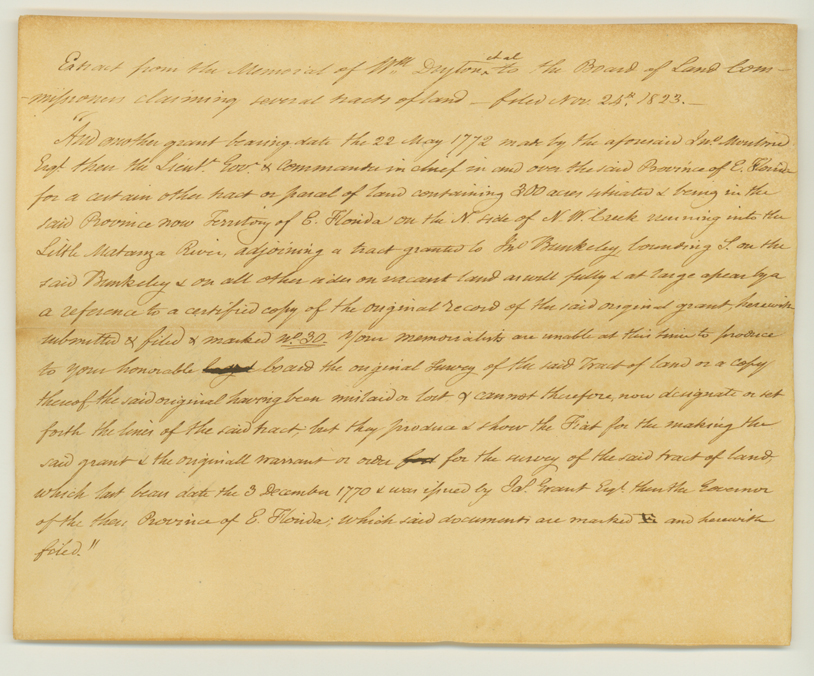 Extract from the Memorial of Wm. Drayton et al to the Board of Land Com-
-missioners claiming several tracts of land - filed Nov. 24th. 1823. -
"And another grant bearing date the 22 May 1772 made by the aforesaid Jno. Moultrie
Esqr. then the Lieut. Govr. & Commander in chief in and over the said Province of E. Florida
for a certain other tract or parcel of land containing 300 acres situated & being in the
said Province now Territory of E. Florida on the N. side of N. W. Creek running into the
Little Matanza River, adjoining a tract granted to Jno. Bunkeley, bounding S. on the
said Bunkeley & on all other sides on vacant land as will fully & at large apear by a
a reference to a certified copy of the original record of the said original grant, herewith
submitted & filed & marked No. 30. Your memorialists are unable at this time to produce
to your honorable board the original Survey of the said Tract of land or a copy
thereof the said original having been mislaid or lost & cannot therefore, now designate or set
forth the lines of the said tract, but they produce & show the Fiat for the making the
said grant & the originall warrant or order for the survey of the said tract of land,
which last bears date the 3 December 1770 & was issued by Jas. Grant Esqr. then the Governor
of the then Province of E. Florida; which said documents are marked and herewith
filed."